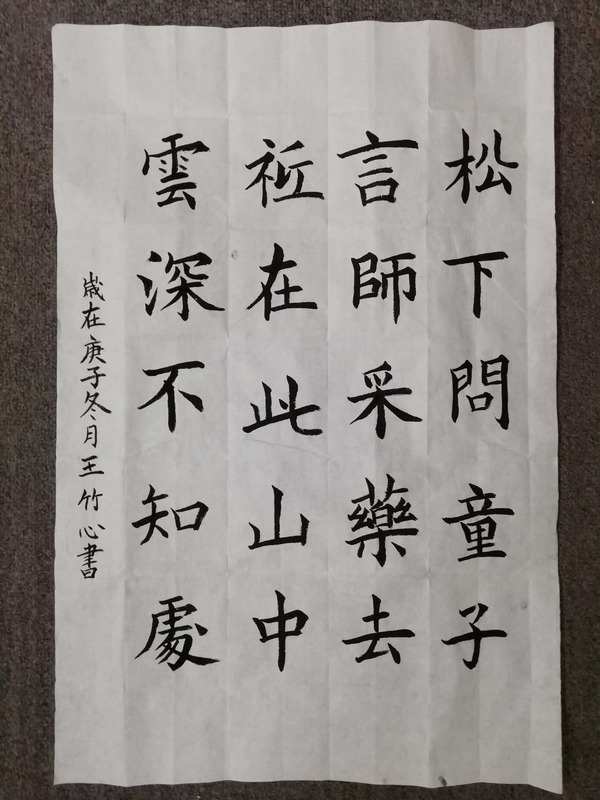 松下問童子
言師采藥去
祗在此山中
雲深不知處
歲在庚子冬月王竹心書